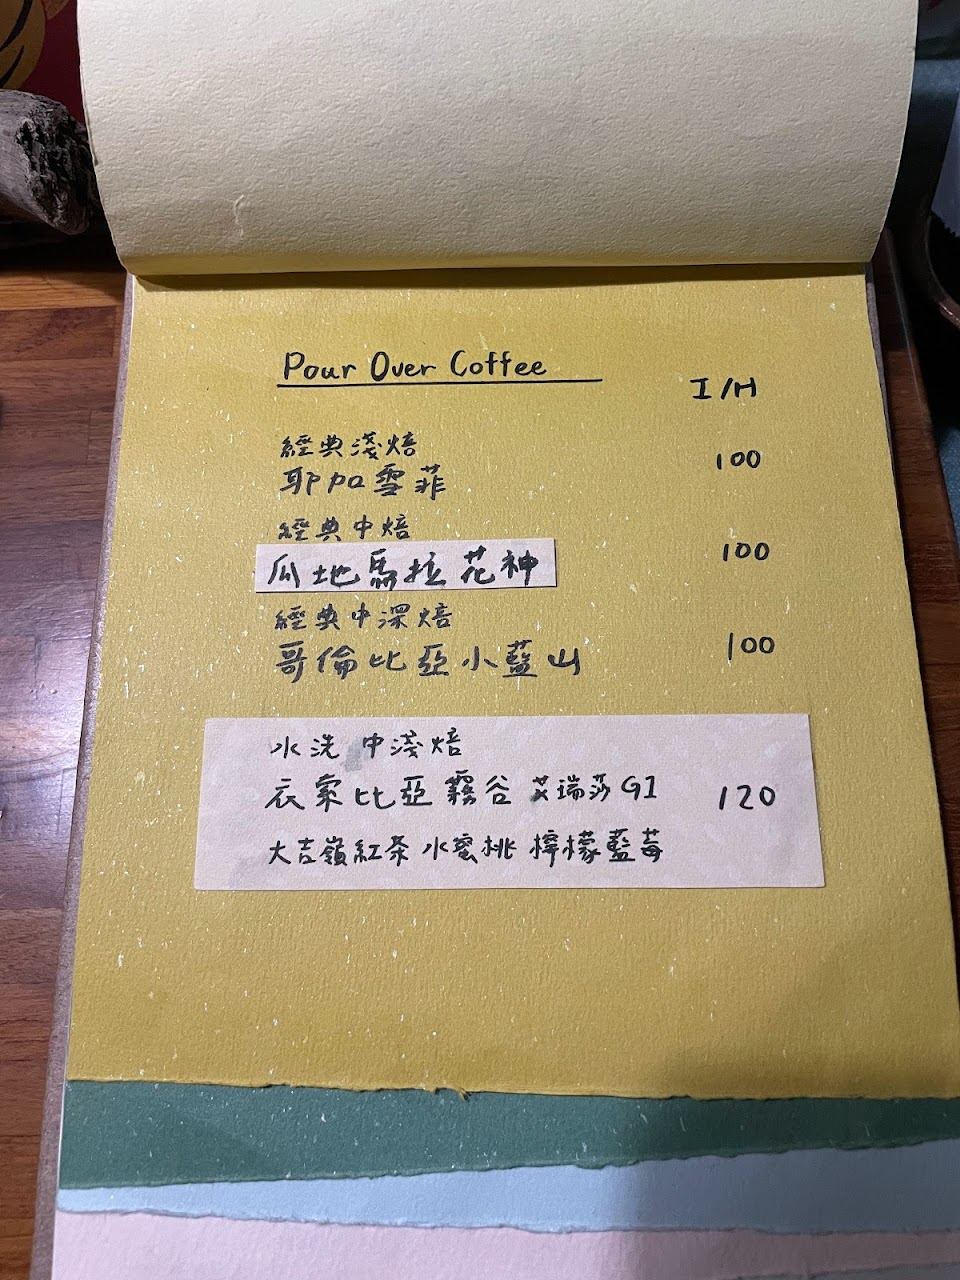 Pour Over Coffee
I/H
經典淺焙
耶加雪菲 100
經典中焙
瓜地馬拉花神 100
經典中深焙
哥倫比亞小藍山 100
水洗 中淺焙
衣索比亞霧谷 艾瑞莎 G1 120
大吉嶺紅茶 水蜜桃 檸檬藍莓